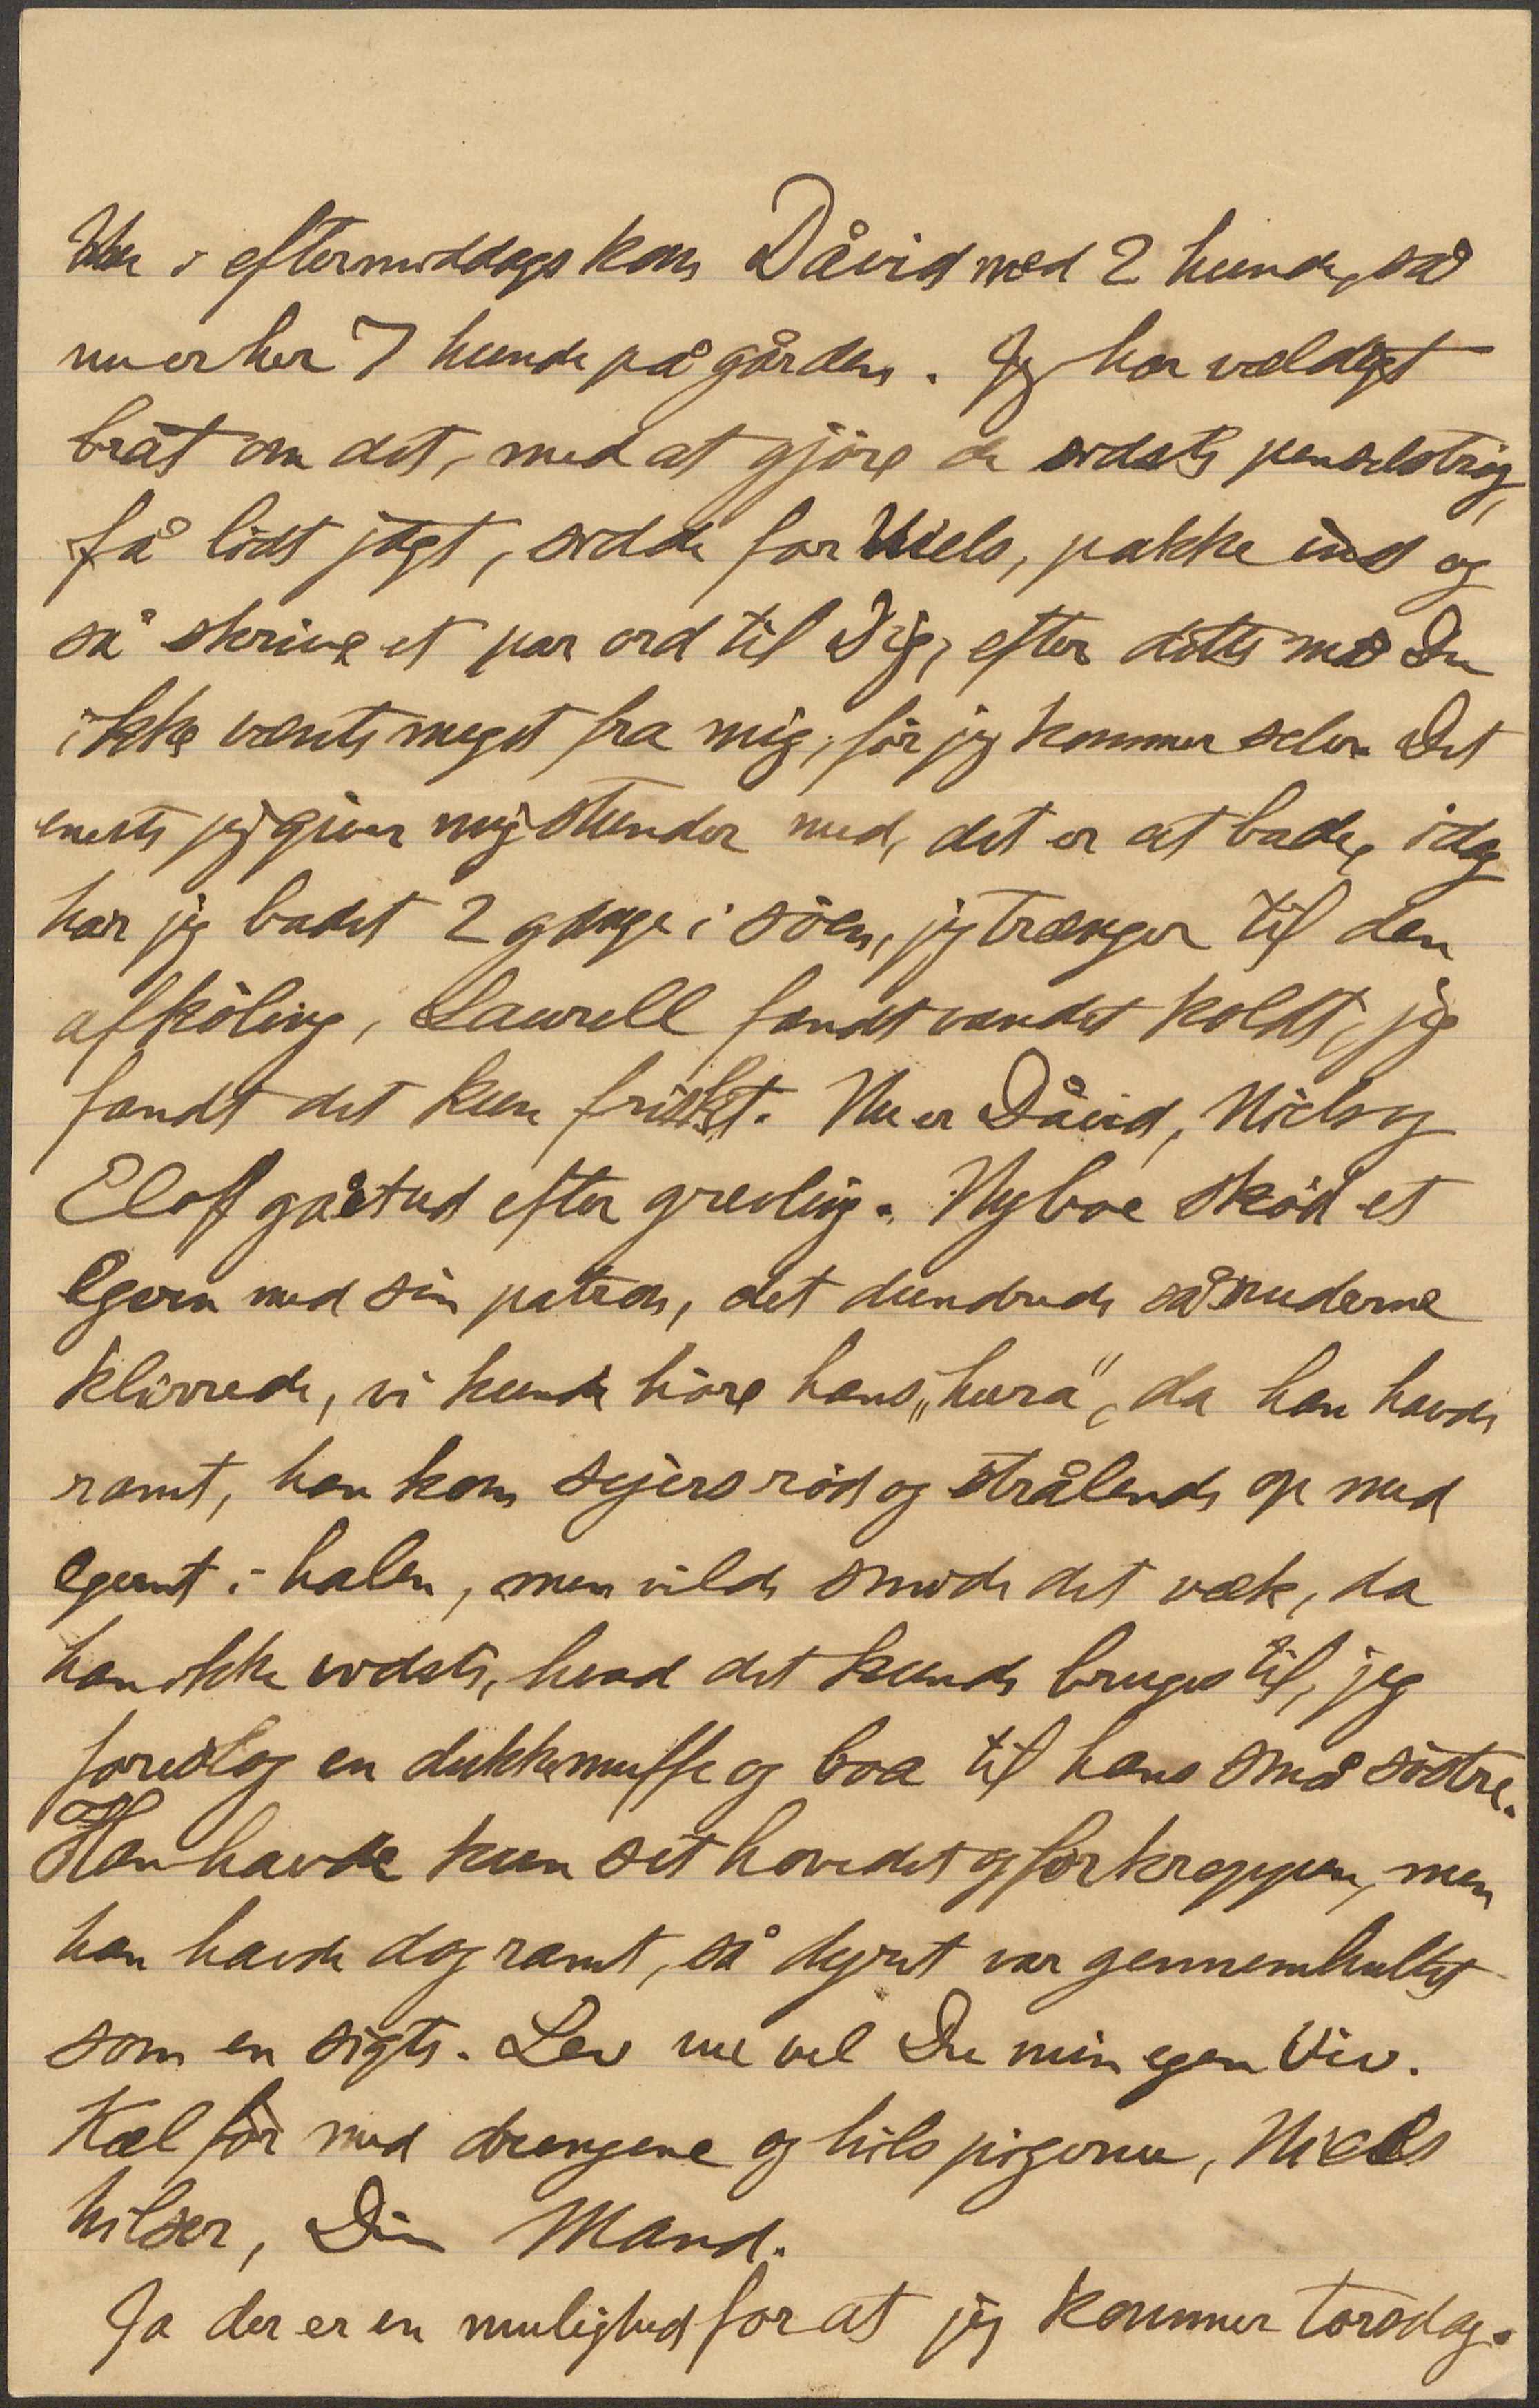 Her i eftermiddags kom Dåvid med 2 hunde, så
nu er her 7 hunde på gården. Jeg har vældigt
bråt om det, med at gjöre de sidste penselströg,
få lidt jagt, sidde for Niels, pakke ind og
så skrive et par ord til Dig, efter dette må Du
ikke vente meget fra mig, för jeg kommer selv. Det
eneste jeg giver mig stunder med, det er at bade, idag
har jeg badet 2 gange i söen, jeg trænger til den
afköling, Laurell fandt vandet koldt, jeg
fandt det kun friskt. Nu er Dåvid, Niels og
Elof gået ud efter grevling. Nyboe sköd et
Egern med sin patron, det dundrede så ruderne
klirrede, vi kunde höre hans „hura", da han havde
ramt, han kom sejersröd og strålende op med
egernt i halen, men vilde smide det væk, da
han ikke vidste, hvad det kunde bruges til, jeg
foreslog en dukkemuffe og boa til hans små söstre.
Han havde kun set hovedet og forkroppen, men
han havde dog ramt, så dyret var gennemhullet
som en sigte. Lev nu vel Du min egen Viv.
Kæl for med drengene og hils pigerne, Niels
hilser, Din Mand.
Ja der er en mulighed for at jeg kommer torsdag.